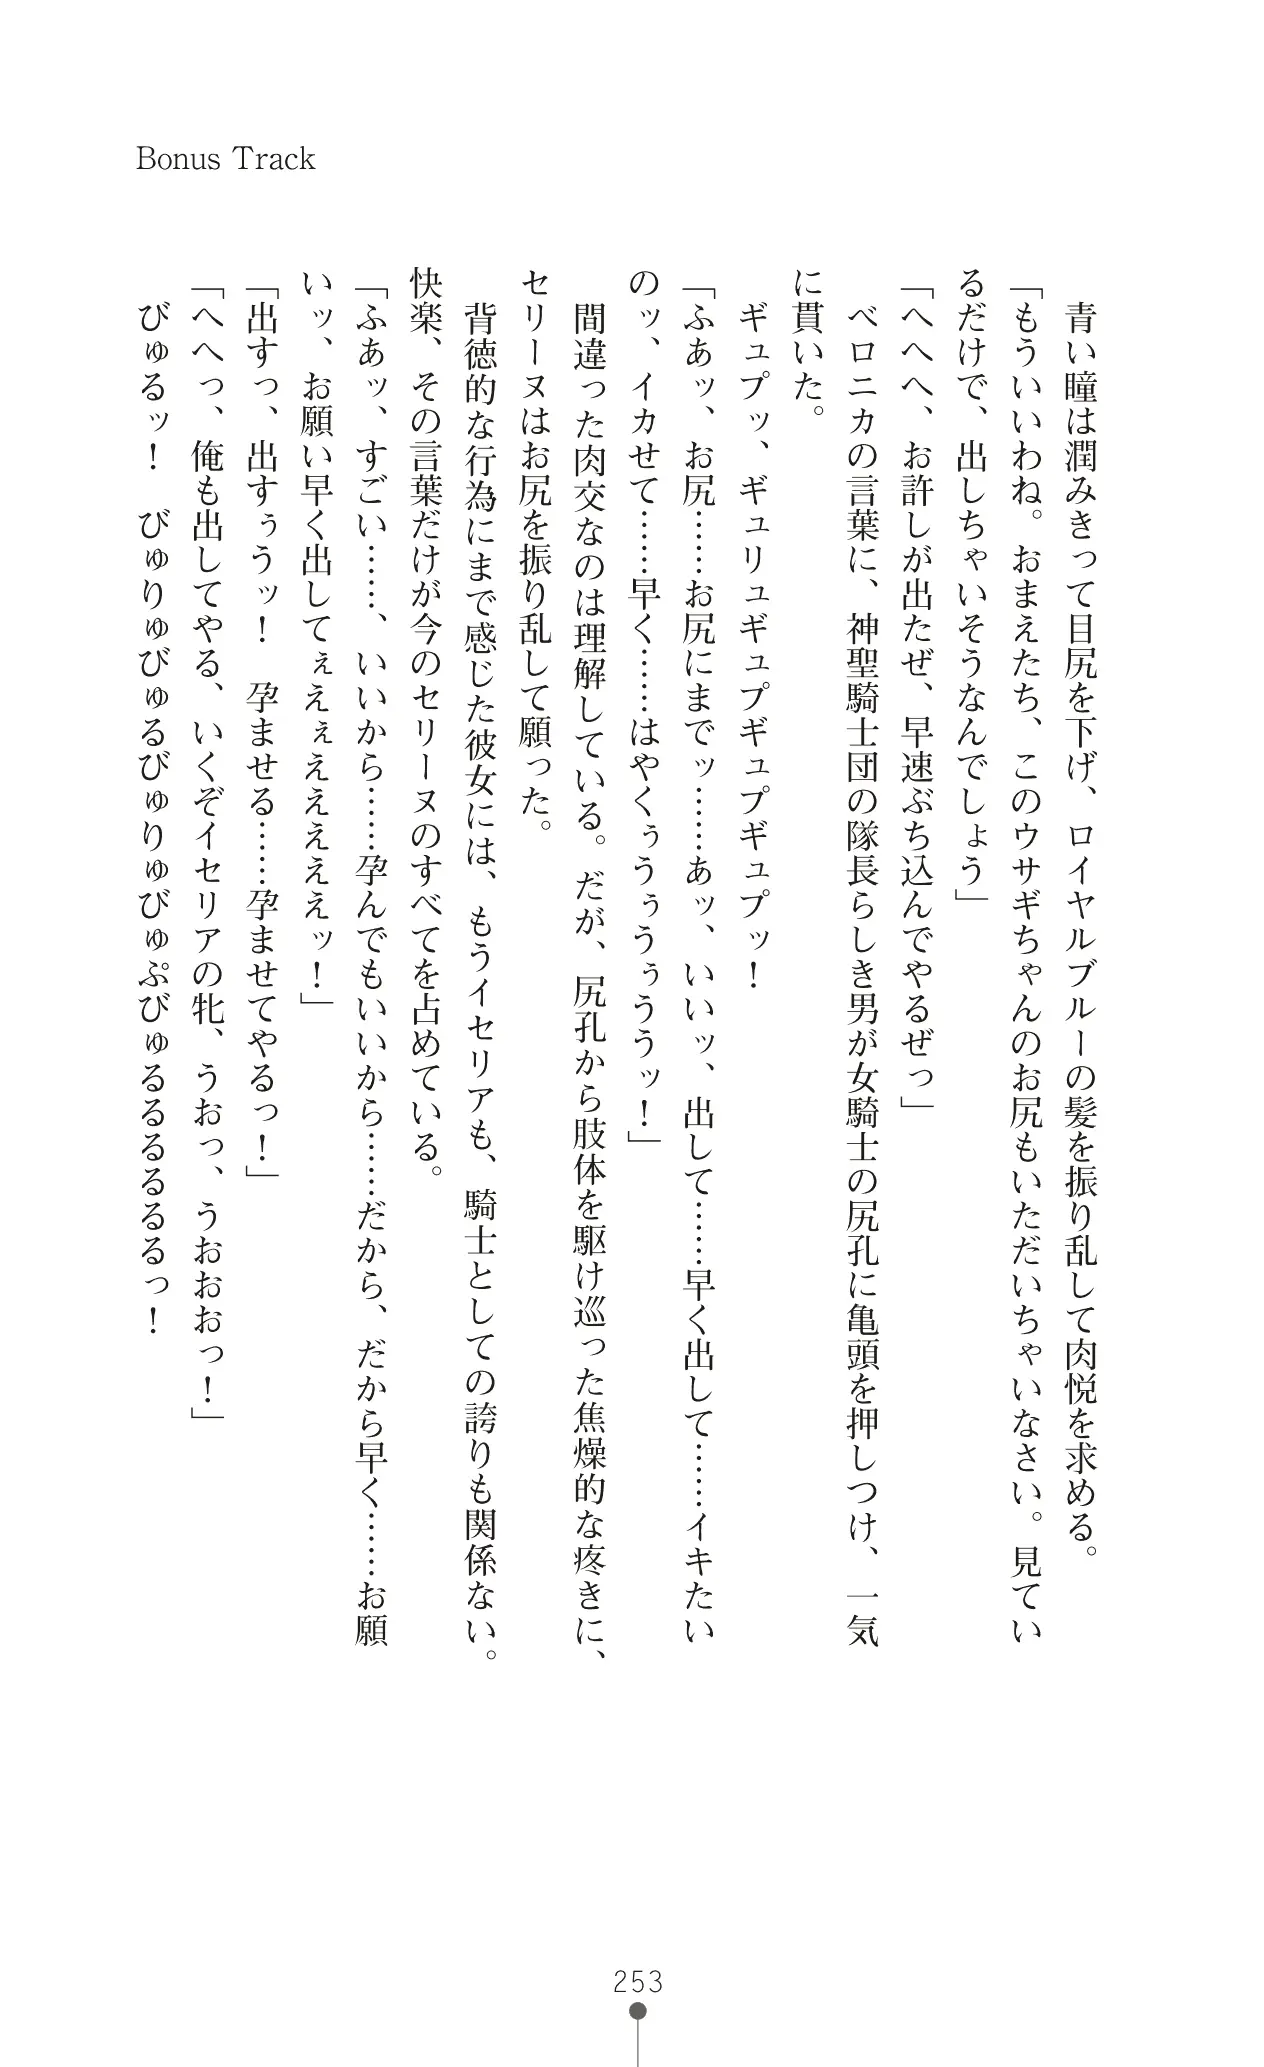 Bonus Track
青い瞳は潤みきって目尻を下げ、ロイヤルブルーの髪を振り乱して肉悦を求める。
「もういいわね。おまえたち、このウサギちゃんのお尻もいただいちゃいなさい。見てい
るだけで、出しちゃいそうなんでしょう」
「へへへ、お許しが出たぜ、早速ぶち込んでやるぜっ」
ベロニカの言葉に、神聖騎士団の隊長らしき男が女騎士の尻孔に亀頭を押しつけ、一気
に貫いた。
ギュプッ、ギュリュギュプギュプギュプッ！
「ふあッ、お尻……お尻にまでッ……あッ、いいッ、出して……早く出して……イキたい
のッ、イカせて……早く……はやくぅうぅうぅううッ！」
間違った肉交なのは理解している。だが、尻孔から肢体を駆け巡った焦燥的な疼きに、
セリーヌはお尻を振り乱して願った。
背徳的な行為にまで感じた彼女には、もうイセリアも、騎士としての誇りも関係ない。
快楽、その言葉だけが今のセリーヌのすべてを占めている。
「ふぁッ、すごい……、いいから……孕んでもいいから……だから、だから早く……お願
いッ、お願い早く出してぇえぇええええッ！」
「出すっ、出すぅうッ！　孕ませる……孕ませてやるっ！」
「へへっ、俺も出してやる、いくぞイセリアの牝、うおっ、うおおおっ！」
びゅるッ！　びゅりゅびゅるびゅりゅびゅぷびゅるるるるるるっ！
253